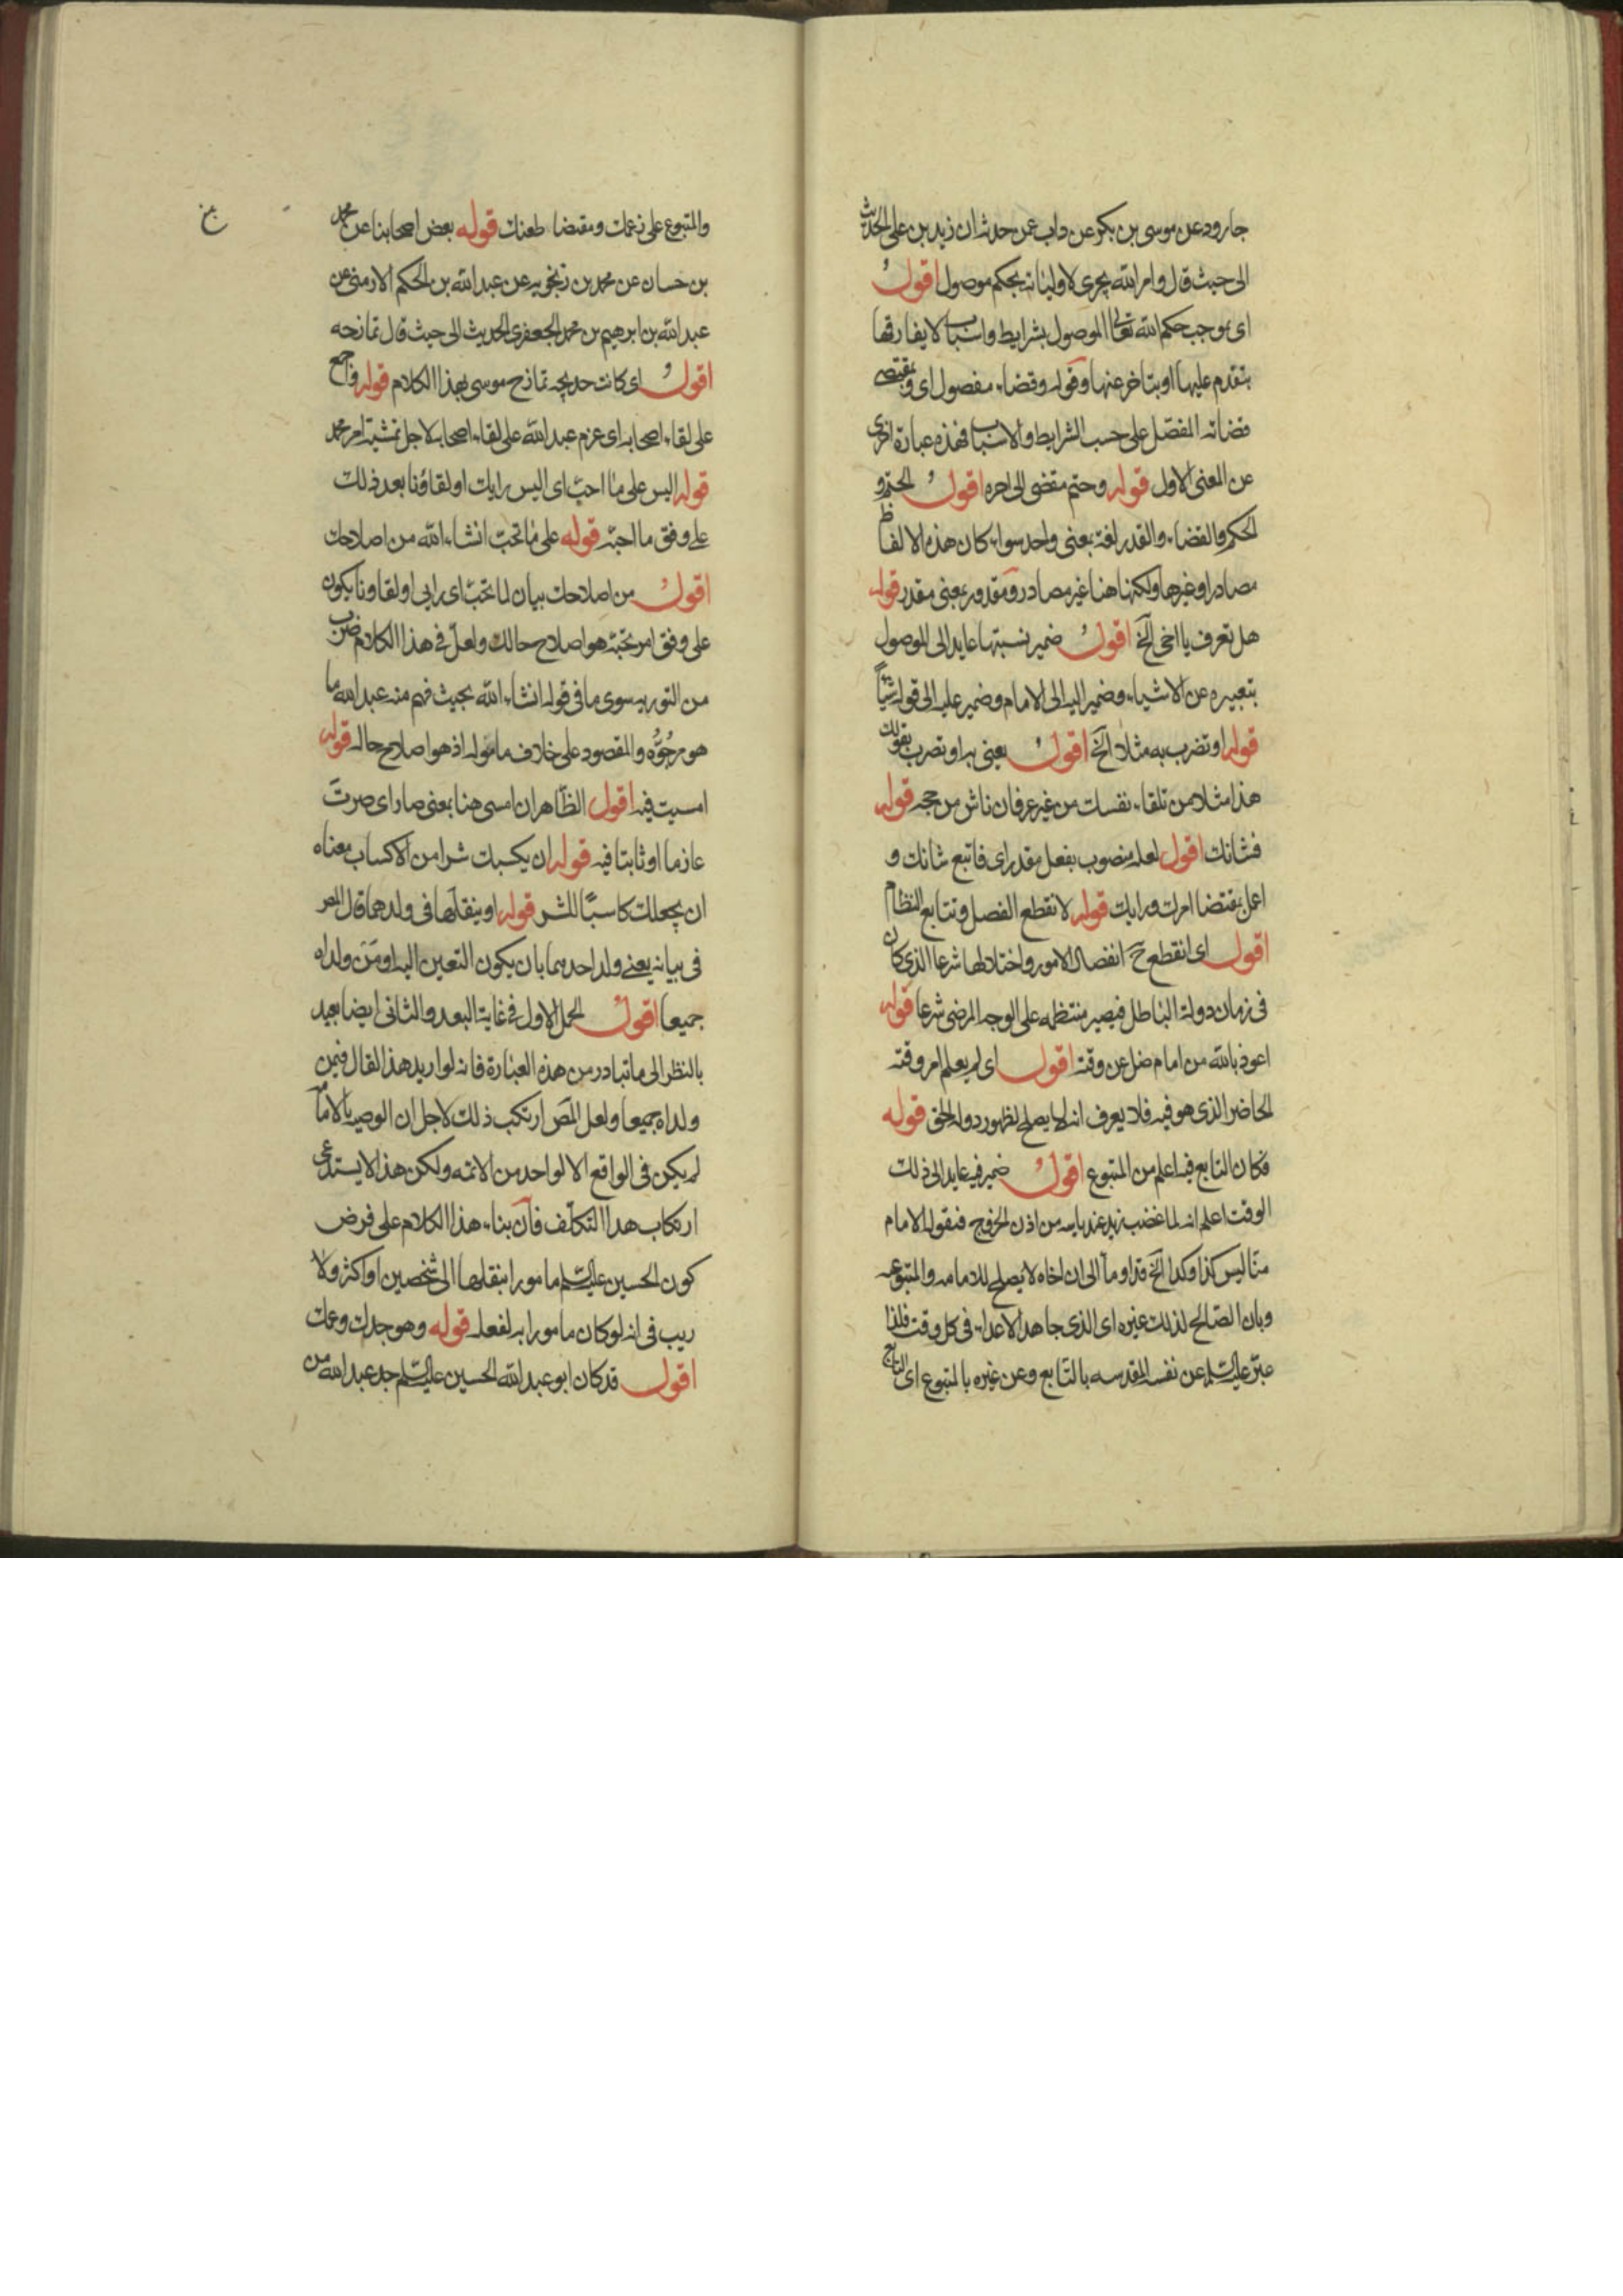 جارود عن موسى بن بكر عن داب عمن حدثه ان زيد بن على الحديث
الى حيث قال وامر الله يجرى لاوليائه بحكم موصول اقول
اى بموجب حكم الله تعالى الموصول بشرايط واسباب لا يفارقها
يتقدم عليها او يتاخر عنها وقوله وقضاء مفصول اى وبمقتضى
قضائه المفصل على حسب الشرايط والاسباب فهذه عبارة اخرى
عن المعنى الاول قوله وحتم مقضى الى اخره اقول الحتم و
الحكم والقضاء والقدر لغة بمعنى واحد سواء كان هذه الالفاظ
مصادر او غيرها ولكنها هنا غير مصادر ومقدور بمعنى مقدر قوله
هل تعرف يا اخى الخ اقول ضمير نسبتها عايد الى الموصول
بتعبيره عن الاشياء وضمير اليه الى الامام وضمير عليه الى قوله شيئاً
قوله او تضرب به مثلا الخ اقول يعنى به او تضرب بقولك
هذا مثلا من تلقاء نفسك من غير عرفان ناش من حجة قوله
فشانك اقول لعله منصوب بفعل مقدر اى فاتبع شانك و
اعمل بمقتضا امرك ورايك قوله لانقطع الفصل وتتابع النظام
اقول اى انقطع ح انفصال الامور واختلالها شرعا الذى كان
فى زمان دولة الباطل فيصير منتظمه على الوجه المرضى شرعا قوله
اعوذ بالله من امام ضل عن وقته اقول اى لم يعلم امر وقته
الحاضر الذى هو فيه فلا يعرف انه لا يصلح لظهور دولة الحق قوله
فكان التابع فيه اعلم من المتبوع اقول ضمير فيه عايد الى ذلك
الوقت اعلم انه لما غضب زيد عند ياسه من اذن الخروج فبقوله الامام
منا ليس كذا وكذا الخ قد اومأ الى ان اخاه لا يصلح للامامه والمتبوعيه
وبان الصالح لذلك غيره اى الذى جاهد الاعداء فى كل وقت فلذا
عبر عليه السلم عن نفسه المقدسه بالتابع وعن غيره بالمتبوع اى التابع
والمتبوع على زعمك ومقتضا طعنك قوله بعض اصحابنا عن محمد
بن حسان عن محمد بن زنجويه عن عبد الله بن الحكم الارمنى عن
عبد الله بن ابرهيم بن محمد الجعفرى الحديث الى حيث قال تمازحه
اقول اى كانت خديجه تمازح موسى بهذا الكلام قوله واجمع
على لقاء اصحابه اى عزم عبد الله على لقاء اصحابه لاجل تمشية امر محمد
قوله اليس على ما احب اى اليس رايك او لقاؤنا بعد ذلك
على وفق ما احبه قوله على ما تحب انشاء الله من اصلاحك
اقول من اصلاحك بيان لما تحب اى رايى او لقاونا يكون
على وفق امر تحبه هو اصلاح حالك ولعل فى هذا الكلام ضرب
من التوريه سوى ما فى قوله انشاء الله بحيث فهم منه عبد الله ما
هو مرجوه والمقصود على خلاف ماموله اذ هو اصلاح حاله قوله
امسيت فيه اقول الظاهر ان امسى هنا بمعنى صار اى صرت
عازما او ثابتا فيه قوله ان يكسبك شرا من الاكساب معناه
ان يجعلك كاسبًا للشر قوله او ينقلها فى ولدهما قال المص
فى بيانه يعنى ولد احدهما بان يكون التعيين اليه او من ولداه
جميعا اقول الحمل الاول فى غاية البعد والثانى ايضا بعيد
بالنظر الى ما تبادر من هذه العبارة فانه لو اريد هذا لقال فيمن
ولداه جميعا ولعل المص ارتكب ذلك لاجل ان الوصيه بالامامه
لم يكن فى الواقع الا لواحد من الائمه ولكن هذا لا يستدعى
ارتكاب هذا التكلف فان بناء هذا الكلام على فرض
كون الحسين عليه السلم مامورا بنقلها الى شخصين او اكثر ولا
ريب فى انه لو كان مامورا به لفعله قوله وهو جدك وعمك
اقول قد كان ابو عبد الله الحسين عليه السلم جد عبد الله من